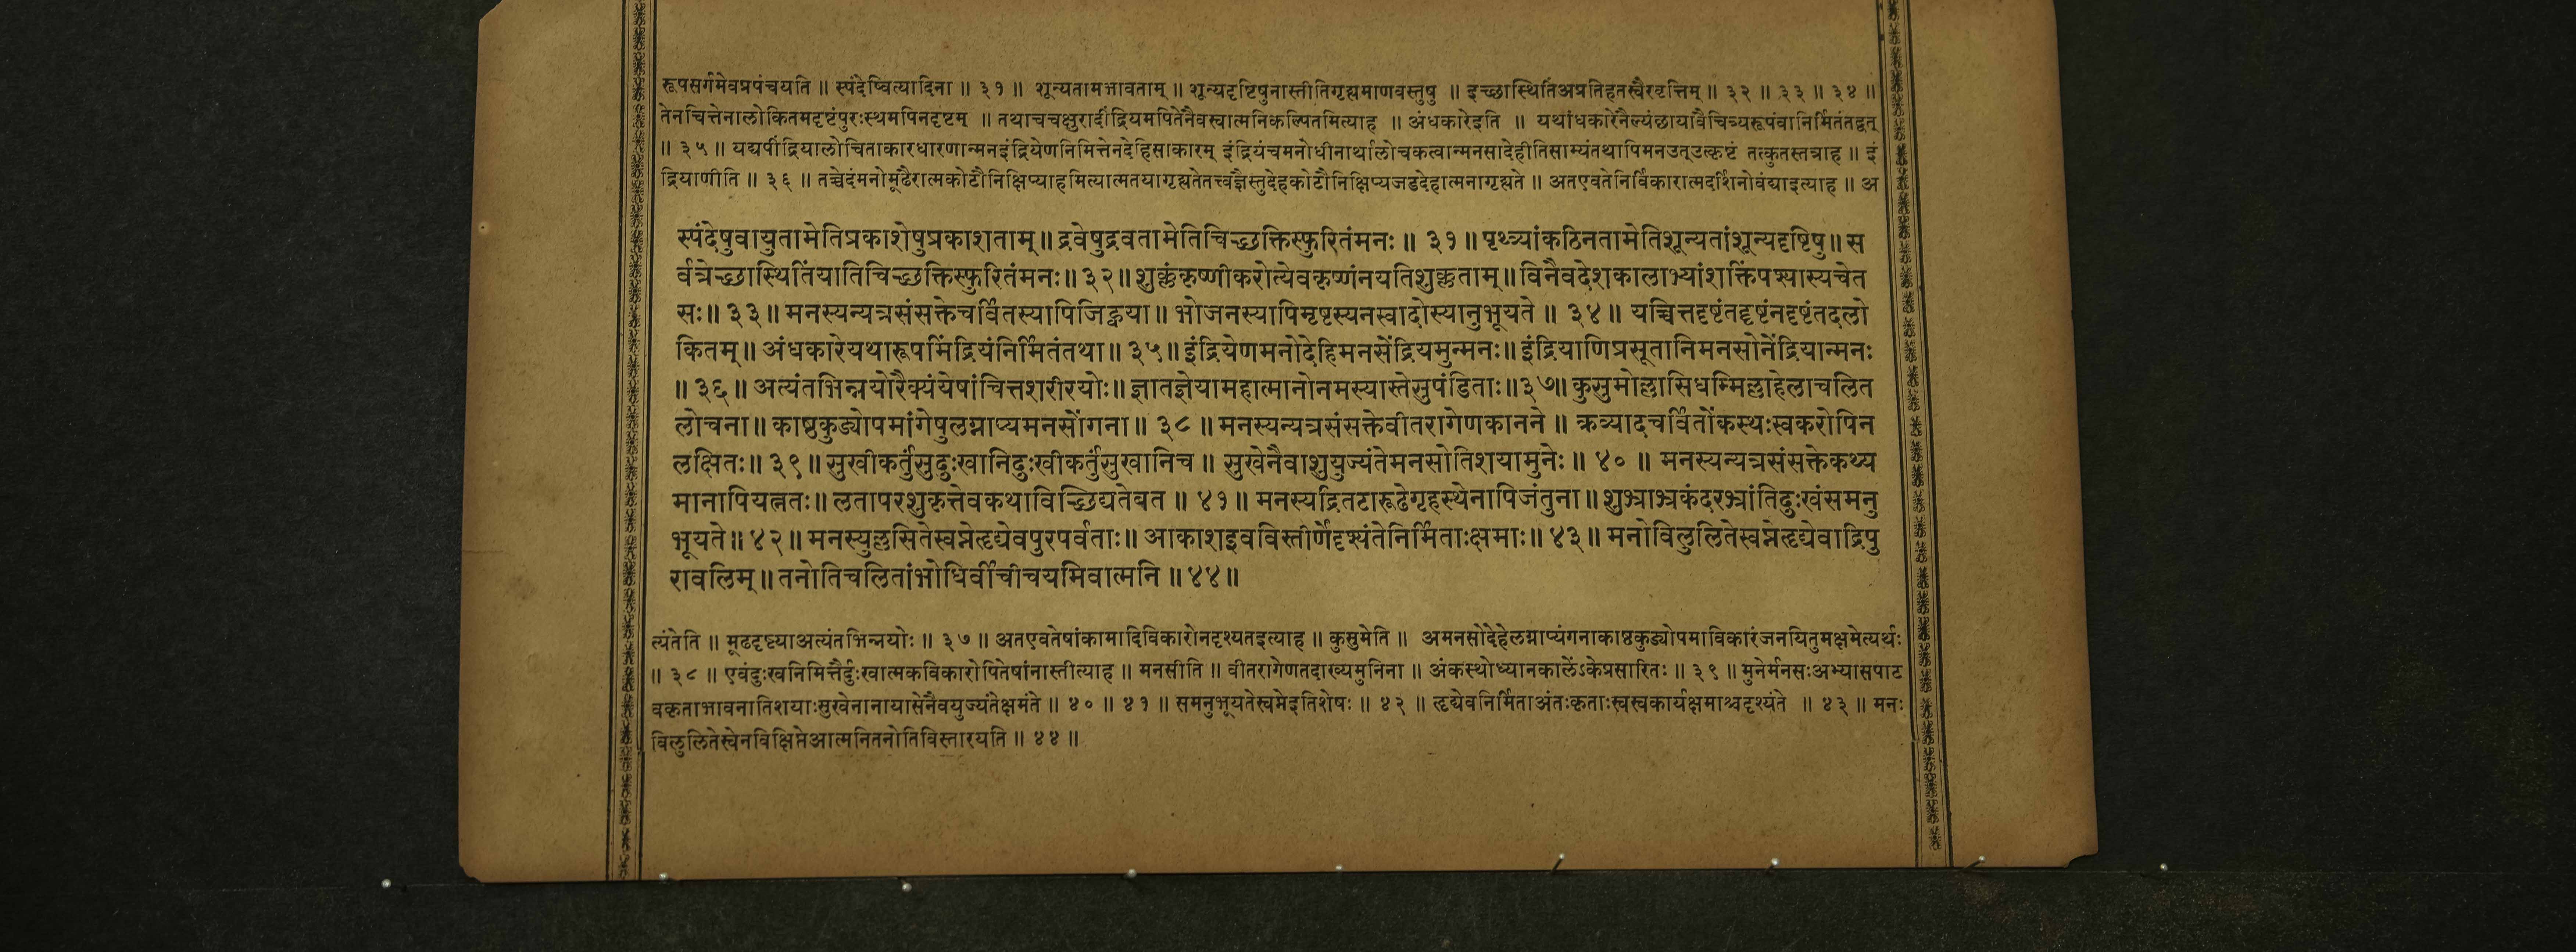 रूपसर्गमेवप्रपंचयति ॥ स्पंदेष्वित्यादिना ॥ ३१ ॥ शून्यतामभावताम् ॥ शून्यदृष्टिषुनास्तीतिगृह्यमाणवस्तुषु ॥ इच्छास्थितिंअप्रतिहतस्वैरवृत्तिम् ॥ ३२ ॥ ३३ ॥ ३४ ॥
तेनचित्तेनालोकितमदृष्टंपुरःस्थमपिनदृष्टम् ॥ तथाचचक्षुरादींद्रियमपितेनैवस्वात्मनिकल्पितमित्याह ॥ अंधकारेइति ॥ यथांधकारेनैल्यंछायावैचित्र्यरूपंवानिर्मितंतद्वत्
॥ ३५ ॥ यद्यपींद्रियालोचिताकारधारणान्मनइंद्रियेणनिमित्तेनदेहिसाकारम् इंद्रियंचमनोधीनार्थालोचकत्वान्मनसादेहीतिसाम्यंतथापिमनउत्उत्कृष्टं तत्कुतस्तत्राह ॥ इं
द्रियाणीति ॥ ३६ ॥ तच्चेदंमनोमूढैरात्मकोटौनिक्षिप्याहमित्यात्मतयागृह्यतेतत्त्वज्ञैस्तुदेहकोटौनिक्षिप्यजडदेहात्मनागृह्यते ॥ अतएवतेनिर्विकारात्मदर्शिनोवंद्याइत्याह ॥ अ
स्पंदेषुवायुतामेतिप्रकाशेषुप्रकाशताम् ॥ द्रवेषुद्रवतामेतिचिच्छक्तिस्फुरितंमनः ॥ ३१ ॥ पृथ्व्यांकठिनतामेतिशून्यतांशून्यदृष्टिषु ॥ स
र्वत्रेच्छास्थितिंयातिचिच्छक्तिस्फुरितंमनः ॥ ३२ ॥ शुक्लंकृष्णीकरोत्येवकृष्णंनयतिशुक्लताम् ॥ विनैवदेशकालाभ्यांशक्तिंपश्यास्यचेत
सः ॥ ३३ ॥ मनस्यन्यत्रसंसक्तेचर्वितस्यापिजिह्वया ॥ भोजनस्यापिमृष्टस्यनस्वादोस्यानुभूयते ॥ ३४ ॥ यच्चित्तदृष्टंतद्दृष्टंनदृष्टंतदलो
कितम् ॥ अंधकारेयथारूपमिंद्रियंनिर्मितंतथा ॥ ३५ ॥ इंद्रियेणमनोदेहिमनसेंद्रियमुन्मनः ॥ इंद्रियाणिप्रसूतानिमनसोनेंद्रियान्मनः
॥ ३६ ॥ अत्यंतभिन्नयोरैक्यंयेषांचित्तशरीरयोः ॥ ज्ञातज्ञेयामहात्मानोनमस्यास्तेसुपंडिताः ॥ ३७ ॥ कुसुमोल्लासिधम्मिल्लाहेलाचलित
लोचना ॥ काष्ठकुड्योपमांगेषुलग्नाप्यमनसोंगना ॥ ३८ ॥ मनस्यन्यत्रसंसक्तेवीतरागेणकानने ॥ क्रव्यादचर्वितोंकस्थःस्वकरोपिन
लक्षितः ॥ ३९ ॥ सुखीकर्तुंसुदुःखानिदुःखीकर्तुंसुखानिच ॥ सुखेनैवाशुयुज्यंतेमनसोतिशयामुनेः ॥ ४० ॥ मनस्यन्यत्रसंसक्तेकथ्य
मानापियत्नतः ॥ लतापरशुकृत्तेवकथाविच्छिद्यतेबत ॥ ४१ ॥ मनस्यद्रितटारूढेगृहस्थेनापिजंतुना ॥ शुभ्राभ्रकंदरभ्रांतिदुःखंसमनु
भूयते ॥ ४२ ॥ मनस्युल्लसितेस्वप्नेहृद्येवपुरपर्वताः ॥ आकाशइवविस्तीर्णेदृश्यंतेनिर्मिताःक्षमाः ॥ ४३ ॥ मनोविलुलितेस्वप्नेहृद्येवाद्रिपु
रावलिम् ॥ तनोतिचलितांभोधिर्वीचीचयमिवात्मनि ॥ ४४ ॥
त्यंतेति ॥ मूढदृष्ट्याअत्यंतभिन्नयोः ॥ ३७ ॥ अतएवतेषांकामादिविकारोनदृश्यतइत्याह ॥ कुसुमेति ॥ अमनसोदेहेलग्नाप्यंगनाकाष्ठकुड्योपमाविकारंजनयितुमक्षमेत्यर्थः
॥ ३८ ॥ एवंदुःखनिमित्तैर्दुःखात्मकविकारोपितेषांनास्तीत्याह ॥ मनसीति ॥ वीतरागेणतदाख्यमुनिना ॥ अंकस्थोध्यानकालेंऽकेप्रसारितः ॥ ३९ ॥ मुनेर्मनसःअभ्यासपाट
वकृताभावनातिशयाःसुखेनानायासेनैवयुज्यंतेक्षमंते ॥ ४० ॥ ४१ ॥ समनुभूयतेस्वप्नेइतिशेषः ॥ ४२ ॥ हृद्येवनिर्मिताअंतःकृताःस्वस्वकार्यक्षमाश्चदृश्यंते ॥ ४३ ॥ मनः
विलुलितेस्वेनविक्षिप्तेआत्मनितनोतिविस्तारयति ॥ ४४ ॥